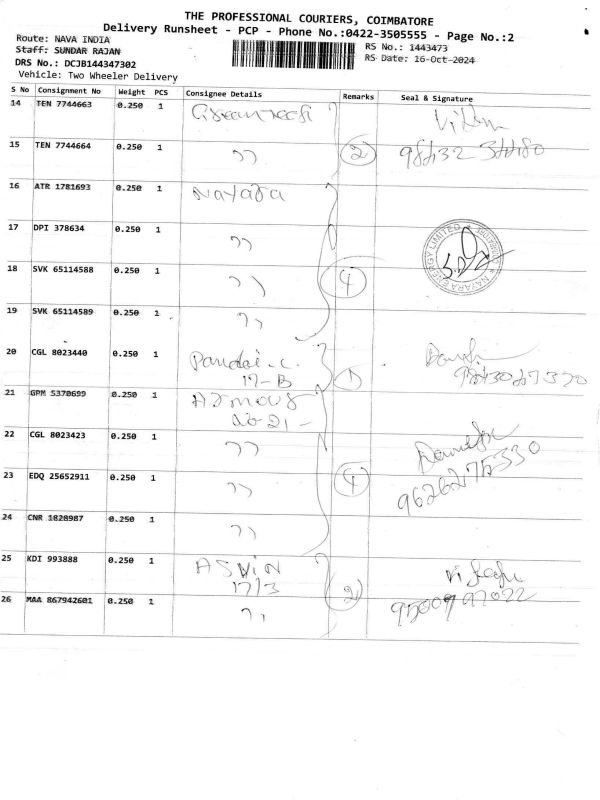 THE PROFESSIONAL COURIERS, COIMBATORE
Delivery Runsheet - PCP - Phone No.:0422-3505555 - Page No.:2
Route: NAVA INDIA
RS No.: 1443473
Staff: SUNDAR RAJAN
RS Date: 16-Oct-2024
DRS No.: DCJB144347302
Vehicle: Two Wheeler Delivery
S No Consignment No Weight PCS Consignee Details Remarks Seal & Signature
14 TEN 7744663 0.250 1
15 TEN 7744664 0.250 1 ” 2
16 ATR 1781693 0.250 1 Nayara
17 DPI 378634 0.250 1 ”
18 SVK 65114588 0.250 1 ” 4
NAYARA ENERGY LIMITED
19 SVK 65114589 0.250 1 ”
20 CGL 8023440 0.250 1 1
17-B
21 GPM 5370699 0.250 1
22 CGL 8023423 0.250 1 ”
23 EDQ 25652911 0.250 1 ” 4 9626275330
24 CNR 1828987 0.250 1 ”
25 KDI 993888 0.250 1 ASVIN
17/3 2
26 MAA 867942601 0.250 1 ”